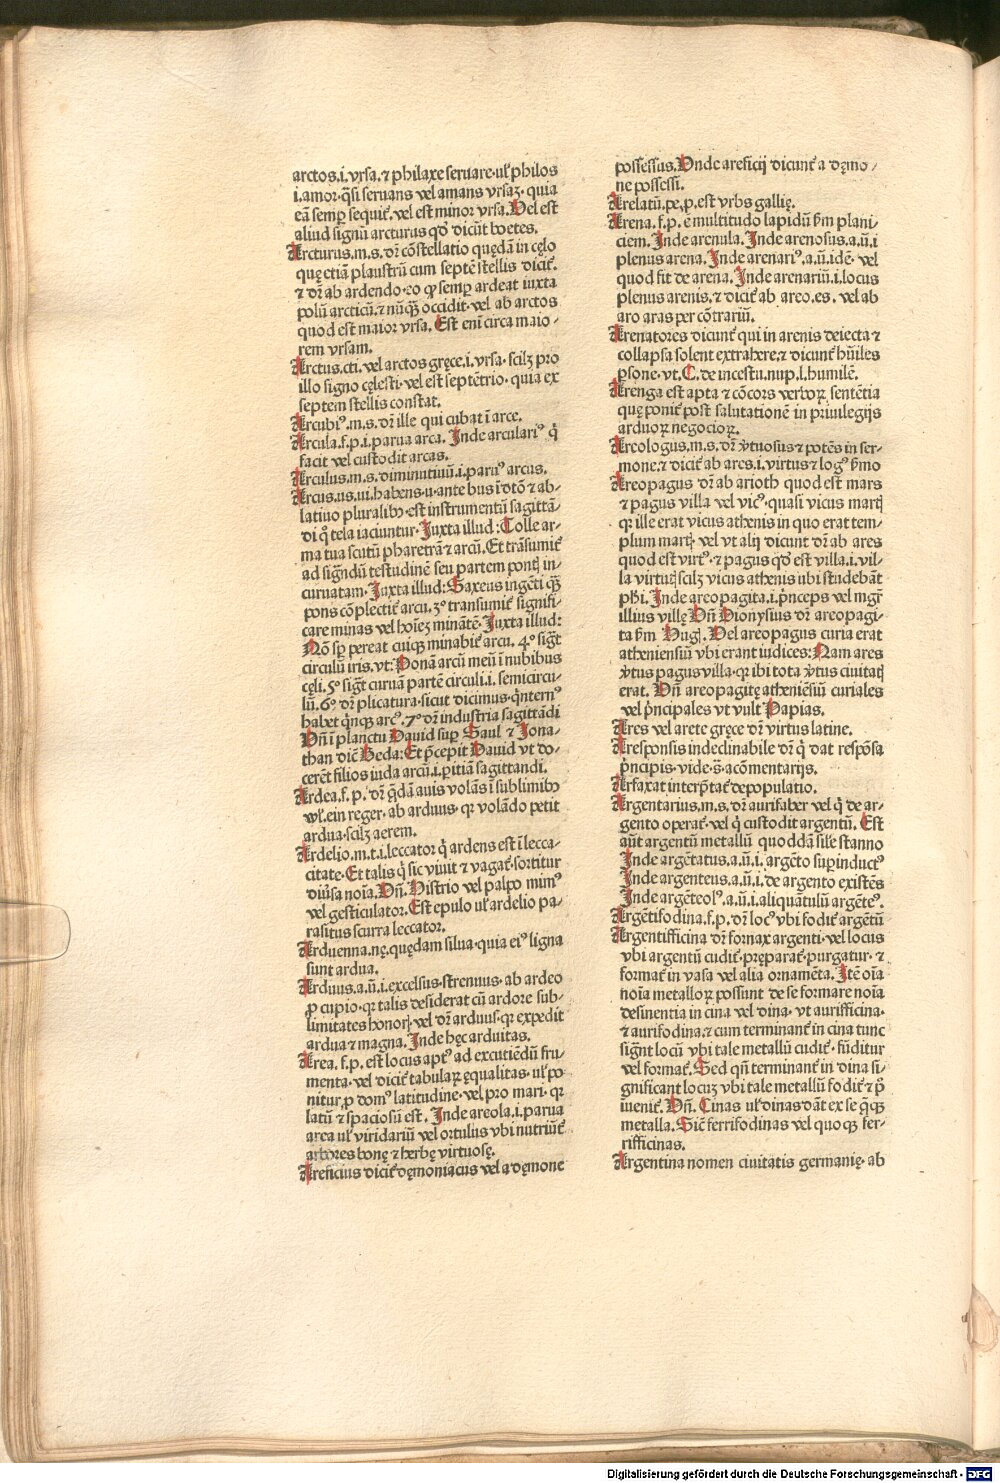 arctos.i.vrsa.⁊ philaxe seruare.ul̕ philos
i.amor.q̄si seruans vel amans vrsaꝫ. quia
eā semꝑ sequit̄.vel est minor vrsa. Vel est
aliud signū arcturus qd̕ dicūt boetes.
Arcturus.m.s. dr̄ cōstellatio quędā in cęlo
quę etiā plaustrū cum septē stellis dicit̄.
⁊ dr̄ ab ardendo.eo ꝙ semꝑ ardeat iuxta
polū arcticū.⁊ nūqꝫ occidit.vel ab arctos
quod est maior vrsa. Est eni circa maio-
rem vrsam.
Arctus.cti. vel arctos gręce.i.vrsa. scilꝫ pro
illo signo cęlesti.vel est septētrio. quia ex
septem stellis constat.
Arcubiꝰ.m.s. dr̄ ille qui cubat ī arce.
Arcula.f.p.i.parua arca. Inde arculariꝰ q̇
facit vel custodit arcas.
Arculus.m.s. diminutiuū.i.paruꝰ arcus.
Arcus.us.ui.habens.u.ante bus ī dtō ⁊ ab-
latiuo pluralibꝫ.est instrumentū sagittā-
di q̇ tela iaciuntur. Juxta illud: Tolle ar-
ma tua scutū pharetrā ⁊ arcū. Et trāsumit̄
ad sigñdū testudinē seu partem pontꝭ in-
curuatam. Juxta illud: Saxeus ingēti qꝫ
pons cōplectit̄ arcu. 3ꝰ transumit̄ signifi-
care minas vel hoīeꝫ minātē. Juxta illud:
Nō sꝑ pereat cuiqꝫ minabit̄ arcu. 4ꝰ sigt̄
circulū iris.vt: Ponā arcū meū ī nubibus
cęli. 5ꝰ sigt̄ curuā partē circuli.i. semicircu-
lū. 6ꝰ dr̄ plicatura. sicut dicimus. q̇nternꝰ
habet q̇nqꝫ arcꝰ. 7ꝰ dr̄ industria sagittādi
Vn̄ ī planctu Dauid suꝑ Saul ⁊ Jona-
than dic̄ Beda: Et p̄cepit Dauid vt do-
cerēt filios iuda arcū.i.ꝑitiā sagittandi.
Ardea.f.p. dr̄ q̄dā auis volās ī sublimibꝫ
wl̕.ein reger. ab arduus. qꝛ volādo petit
ardua.scilꝫ aerem.
Ardelio.m.t.i.leccator q̇ ardens est ī lecca-
citate. Et talis q̇ sic viuit ⁊ vagat̄.sortitur
diūsa noīa. Vn̄. Histrio vel palpo mimꝰ
vel gesticulator. Est epulo ul̕ ardelio pa-
rasitus scurra leccator.
Arduenna.nę.quędam silua.quia eiꝰ ligna
sunt ardua.
Arduus.a.ū.i.excelsus.strenuus. ab ardeo
ꝓ cupio.qꝛ talis desiderat cū ardore sub-
limitates honorꝭ.vel dr̄ arduus.qꝛ expedit
ardua ⁊ magna. Inde hęc arduitas.
Area.f.p. est locus aptꝰ ad excutiēdū fru-
menta. vel dicit̄ tabulaꝝ ęqualitas. ul̕ po
nitur ꝓ domꝰ latitudine. vel pro mari. qꝛ
latū ⁊ spaciosū est. Inde areola.i.parua
area ul̕ viridariū vel ortulus vbi nutriūt̄
arbores bonę ⁊ herbę virtuosę.
Areficius dicit̄ dęmoniacus vel a dęmone
possessus. Vnde areficij dicunt̄ a dęmo-
ne possessi.
Arelatū.pe.p.est vrbs gallię.
Arena.f.p. ē multitudo lapidū ẜm plani-
ciem. Inde arenula. Inde arenosus.a.ū.i
plenus arena. Inde arenariꝰ.a.ū.idē. vel
quod fit de arena. Inde arenariū.i.locus
plenus arenis.⁊ dicit̄ ab areo.es. vel ab
aro aras per cōtrariū.
Arenatores dicunt̄ qui in arenis deiecta ⁊
collapsa solent extrahere.⁊ dicunt̄ hūiles
ꝑsone.vt. C. de incestu.nup.l.humilē.
Arenga est apta ⁊ cōcors verboꝝ sentētia
quę ponit̄ post salutationē in priuilegijs
arduoꝝ negocioꝝ.
Areologus.m.s. dr̄ v̄tuosus ⁊ potēs in ser-
mone.⁊ dicit̄ ab ares.i.virtus ⁊ logꝰ ẜmo
Areopagus dr̄ ab arioth quod est mars
⁊ pagus villa vel vicꝰ. quasi vicus martꝭ
qꝛ ille erat vicus athenis in quo erat tem-
plum martꝭ. vel vt alij dicunt dr̄ ab ares
quod est virtꝰ.⁊ pagus qd̕ est villa.i.vil-
la virtutꝭ scilꝫ vicus athenis ubi studebāt
ph̄i. Inde areopagita.i.p̄nceps vel mgr̄
illius villę Vn̄ Dionysius dr̄ areopagi-
ta ẜm Hug̕. Vel areopagus curia erat
atheniensiū vbi erant iudices: Nam ares
v̄tus pagus villa. qꝛ ibi tota v̄tus ciuitatꝭ
erat. Vn̄ areopagitę atheniēsiū curiales
vel p̄ncipales vt vult Papias.
Ares vel arete gręce dr̄ virtus latine.
Aresponsis indeclinabile dr̄ q̇ dat respōsa
p̄ncipis.vide.s̄.acōmentarijs.
Arfaxat interp̄tat̄ depopulatio.
Argentarius.m.s. dr̄ aurifaber vel q̇ de ar-
gento operat̄. vel q̇ custodit argentū. Est
aūt argentū metallū quoddā sil̕e stanno
Inde argētatus.a.ū.i. argēto suꝑinductꝰ
Inde argenteus.a.ū.i. de argento existēs
Inde argēteolꝰ.a.ū.i.aliquātulū argēteꝰ.
Argētifodina.f.p. dr̄ locꝰ vbi fodit̄ argētū
Argentifficina dr̄ fornax argenti. vel locus
vbi argentū cudit̄. pręparat̄. purgatur. ⁊
format̄ in vasa vel alia ornamēta. Itē oīa
noīa metalloꝝ possunt de se formare noīa
desinentia in cina vel dina. vt aurifficina.
⁊ aurifodina.⁊ cum terminant̄ in cina tunc
sigñt locū vbi tale metallū cudit̄. fūditur
vel format̄. Sed qn̄ terminant̄ in dina si-
gnificant locuꝫ vbi tale metallū fodit̄ ⁊ p̄
iuenit̄. Vn̄. Cinas ul̕ dinas dāt ex se q̄qꝫ
metalla. Sic̄ ferrifodinas vel quoqꝫ fer-
rifficinas.
Argentina nomen ciuitatis germanię. ab
Digitalisierung gefördert durch die Deutsche Forschungsgemeinschaft - DFG